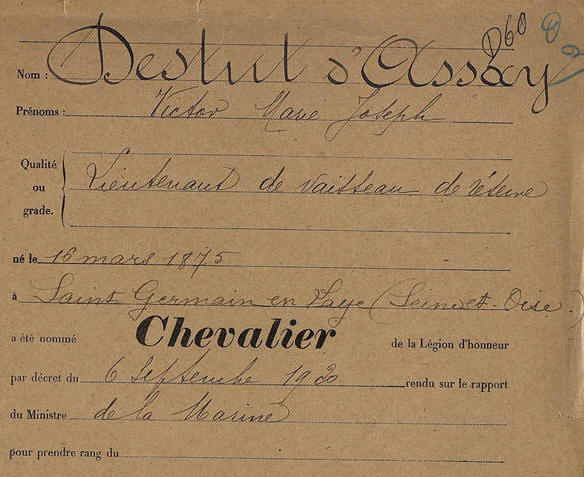 D60
Nom : Destut d'Assay
Prénoms : Victor Marie Joseph
Qualité
ou
grade.
Lieutenant de vaisseau de réserve
né le 16 mars 1875
à Saint Germain en Laye (Seine et-Oise.)
a été nommé Chevalier de la Légion d'honneur
par décret du 6 Septembre 1920 rendu sur le rapport
du Ministre de la Marine
pour prendre rang du